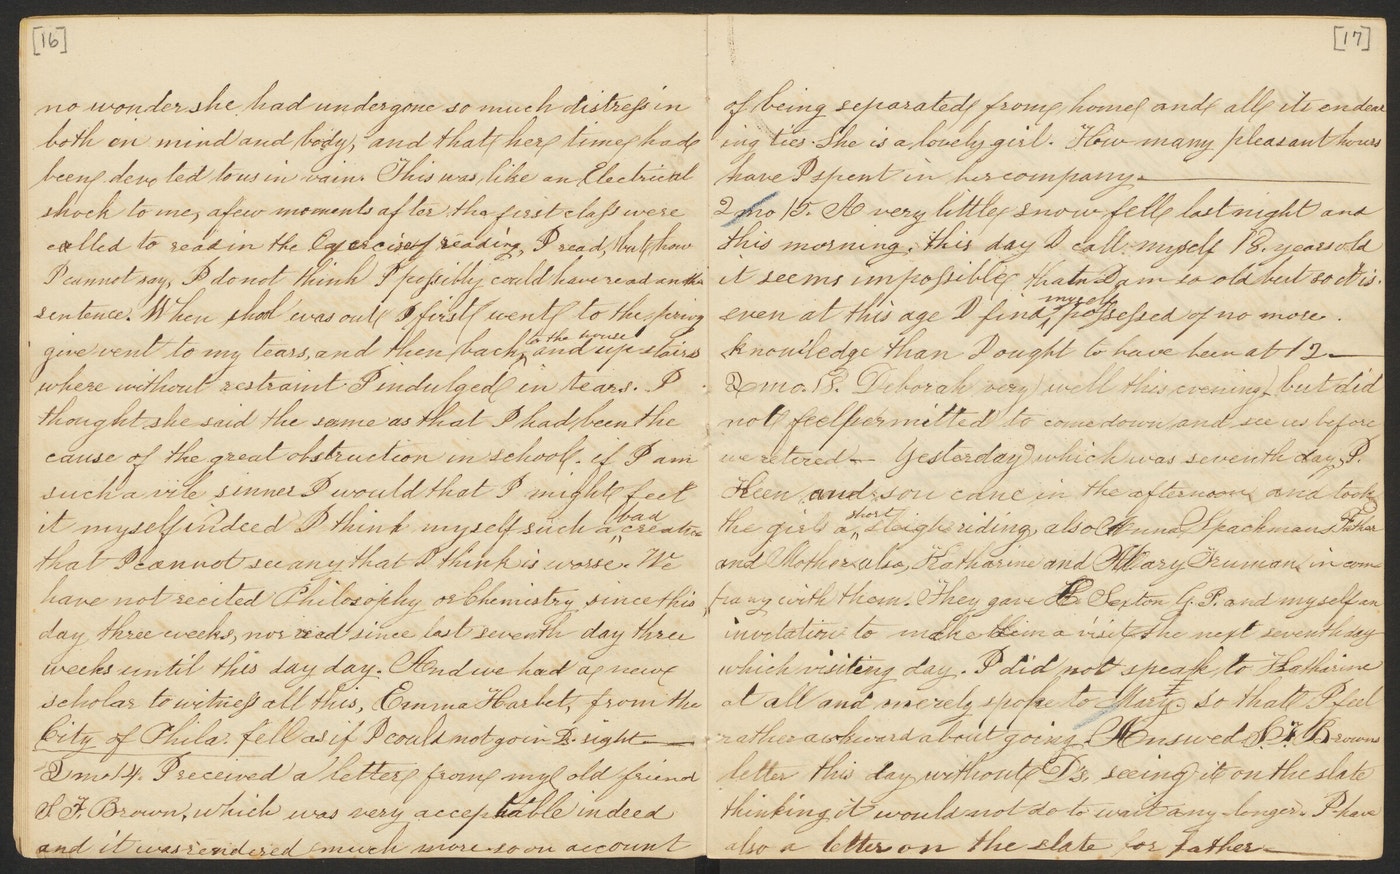 [16]
no wonder she had undergone so much distress in
both in mind and body, and that her time had
been devoted to us in vain. This was, like an Electrical
shock to me, a few moments after the first class were
called to read in the Exercise of reading, I read, but how
I cannot say, I do not think I possibly could have read another
sentence. When shol was out I first went to the privy
give vent to my tears, and then back to the house and up stairs
where without restraint I indulged in tears. I
thought she said the same as that I had been the
cause of the great obstruction in school. if I am
such a vile sinner I would that I might feel
it myself indeed I think myself such a bad creature
that I cannot see any that I think is worse. We
have not recited Philosophy or Chemistry since this
day three weeks, nor read since last seventh day three
weeks until this day day. And we had a new
scholar to witness all this, Emma Harbet, from the
City of Phila. fell as if I could not go in D's. sight.
2 mo 14. I received a letter from my old friend
S F. Brown, which was very acceptable indeed
and it was rendered much more so on account
[17]
of being separated from home and all its endear
ing ties. She is a lovely girl. How many pleasant hours
have I spent in her company.
2 mo 15. A very little snow fell last night and
this morning, this day I call myself 18. years old
it seems impossible that I am so old but so it is.
even at this age I find myself possessed of no more.
knowledge than I ought to have been at 12
2 mo. 18. Deborah very well this evening, but did
not feel permitted to come down and see us before
we retired Yesterday which was seventh day, P.
Keen and son came in the afternoon and took
the girls a short sleigh riding, also Anna Spackmans Father
and Mother also, Katharine and Mary Truman in com-
pany with them. They gave E. Sexton G. P. and myself an
invitation to make them a visit the next seventh day
which visiting day. I did not speak to Katharine
at all and merely spoke to Mary. so that I feel
rather awkward about going. Answed S. F. Browns
letter this day without D's, seeing it on the slate
thinking it would not do to wait any longer. I have
also a letter on the slate for Father